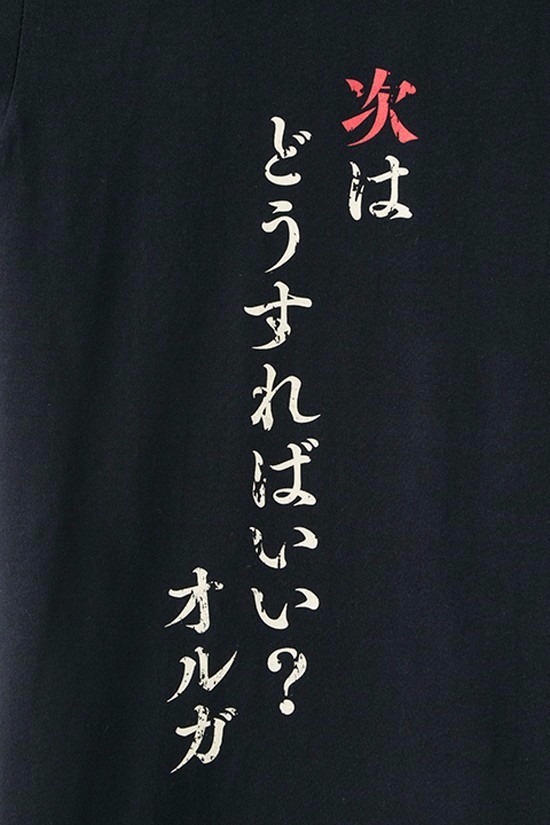 次は
どうすればいい？
オルガ